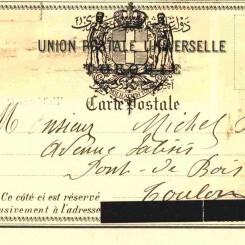 UNION POSTALE UNIVERSELLE
Carte Postale
Monsieur Michel
Avenue
Pont-de Bois
Toulon
Ce côté ci est réservé
usivement à l'adresse